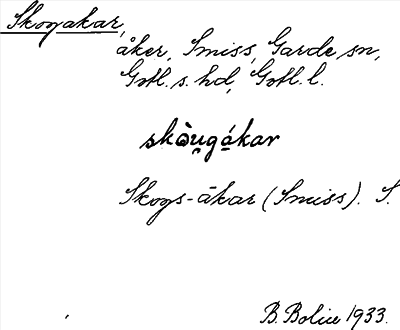 Skogakar,
åker, Smiss, Garde sn,
Gotl. s. hd, Gotl. l.
skòu̯gá̱kar
Skogs-åkar (Smiss). S.
B. Bolin 1933.